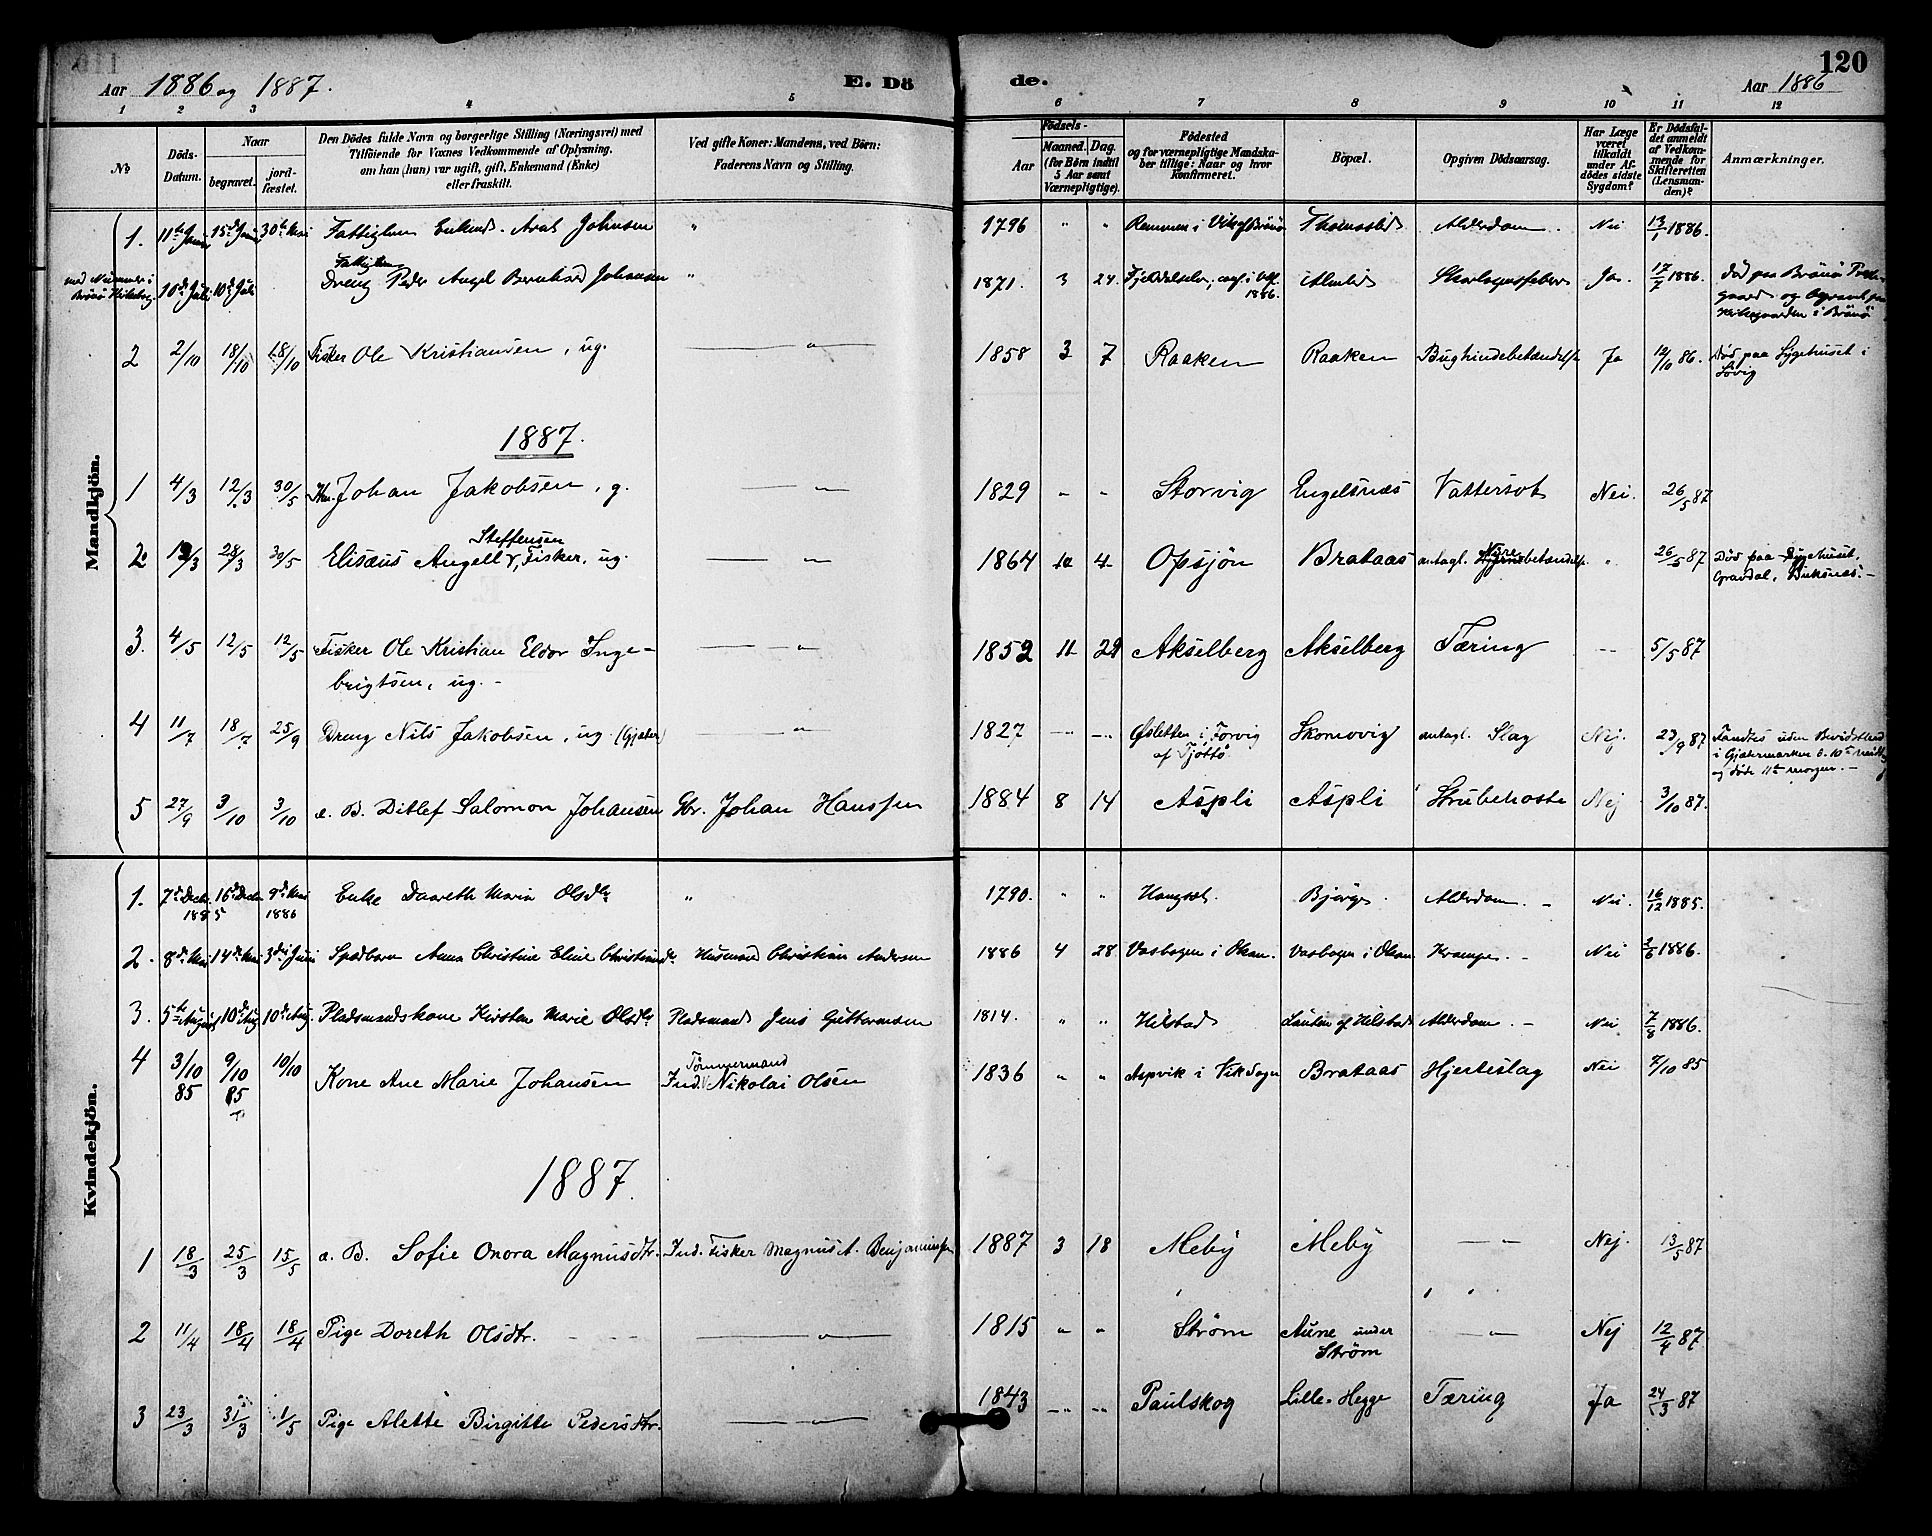 120
Aar 1886 og 1887.
E. Dö de.
Aar 1886
1 2 3 4 5 6 7 8 9 10 11 12
No
Döds-Datum.
Naar
begravet.
jordfæstet.
Den Dödes fulde Navn og borgerlige Stilling (Næringsvei) med
Tilföiende for Voxnes Vedkommende af Oplysning.
om han (hun) var ugift, gift, Enkemand (Enke)
eller fraskilt.
Ved gifte Koner: Mandens, ved Börn:
Faderens Navn og Stilling.
Födsels-
Aar
Maaned. Dag.
(for Börn indtil
5 Aar samt
Værnepligtige).
Födested
og for værnepligtige Mandska-
ber tillige: Naar og hvor
konfirmeret.
Bopæl.
Opgiven Dödsaarsag.
Har Læge
været
tilkaldt
under Af-
dödes sidste
Sygdom?
Er Dödsfal-
det anmeldt
af Vedkom-
mende for
Skifteretten
(Lensman-
den)?
Anmærkninger.
Mandkjön.
1. 11te Juni 15de Juni Johnsen " 1796 " " Alderdom. Nei 13/1 1886.
10de Juli 10de Juli Fattiglem
Dreng Peder Angel Bernhard Johansen " 1871. 3 24 Ja. 17/7 1886.
1886.
2 2/10 18/10 18/10 Fisker Ole Kristiansen, ug. — " — 1858 3 7 Raaken Raaken Bughindebetændelse Ja 12/10 86. Död paa Sygehuset i
Søvig
1887.
1 4/3 12/3 30/5 Johan Jakobsen, g. — " — 1829 " " Storvig Engelsnæs Vattersot Nei. 26/5 87
2 12/3 28/3 30/5 Elisæus Angell Steffensen, Fisker, ug. — " — 1864 10 4 Opsjön Brataas antagl. Nyrebetændelse " 26/5 87 Död paa Sygehuset,
Gravdal, Buksnæs. —
3. 4/5 12/5 12/5 Fisker Ole Kristian Eldor Inge-
brigtsen, ug. — — " — 1852 11 29 Akselberg Akselberg Tæring -- 5/5 87
4 11/7 18/7 25/9 Dreng Nils Jakobsen, ug. (Gjæter) — " — 1827 — " — — " — Øsletten i Forvig
af Tjöttö Skomovig antagl. Slag Nej. 23/9 87 Fandtes uden Bevidsthed
i Gjætermarken d. 10de
og døde 11te morgen. —
5 27/9 3/10 3/10 e. B. Ditlef Salomon Johansen Gbr. Johan Hanssen 1884 8 14 Aspli Aspli Strubehoste Nej 3/10 87.
Kvindekjön.
1. 7de Decbr. 1885 16de Decbr. 9de Mai 1886 Enke Daareth Maria Olsdtr " 1790. " " Alderdom. — Nei. 16/12 1885.
2. 8de Mai 14de Mai 3die Juni Spædbarn Anna Christine Eline Christiansdtr Husmand Christian Andersen 1886 4 28 Krampe. — Nei 2/6 1886.
3. 5te August 10de Aug. 10de Aug. Pladsmandskone Kirsten Marie Olsdtr Pladsmand Jens Guttormsen 1814. " " Hilstad Alderdom. — Nei 7/8 1886.
4 3/10 85 9/10 85 10/10 Kone Ane Marie Johansen Ind. Tømmermand Nikolai Olsen 1836 " " Aspvik i Vik Sogn Brataas Hjerteslag Nei 7/10 85
1887.
1 18/3 25/3 15/5 e. B. Sofie Onora Magnusdtr. Ind. Fisker Magnus A. Benjaminsen 1887 3 18 Meby Meby — " — Nej. 13/5 87
2 11/4 18/4 18/4 Pige Doreth Olsdtr. — " — 1815 " " Strøm Aune under
Strøm — " — Nej 12/4 87
3 23/3 31/3 1/5 Pige Alette Birgitte Pedersdtr. — " — 1843 — " — — " — Paulskog Lille-Hegge Tæring Ja 24/3 87